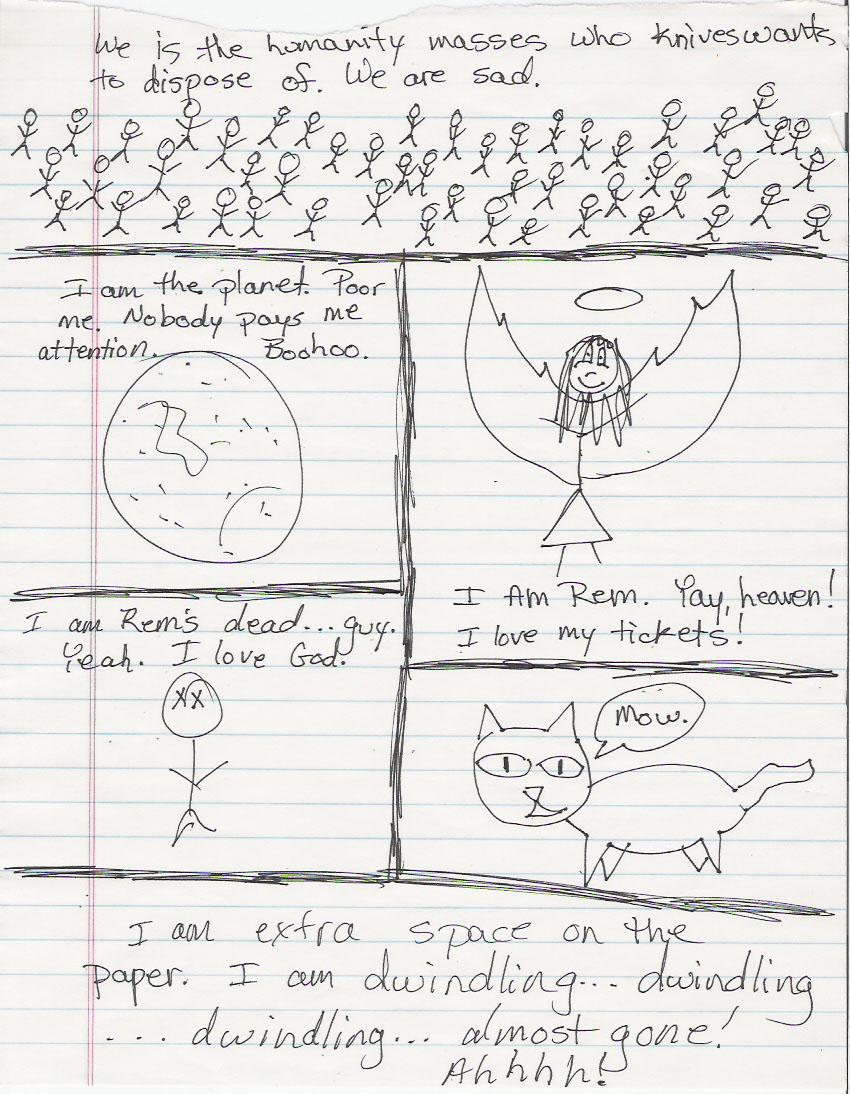 We is the humanity masses who Knives wants
to dispose of. We are sad.
I am the planet. Poor
me. Nobody pays me
attention. Boohoo.
I Am Rem. Yay, heaven!
I love my tickets!
I am Rem's dead...guy.
Yeah. I love God.
XX
Mow.
I am extra space on the
paper. I am dwindling... dwindling
... dwindling... almost gone!
Ahhhh!